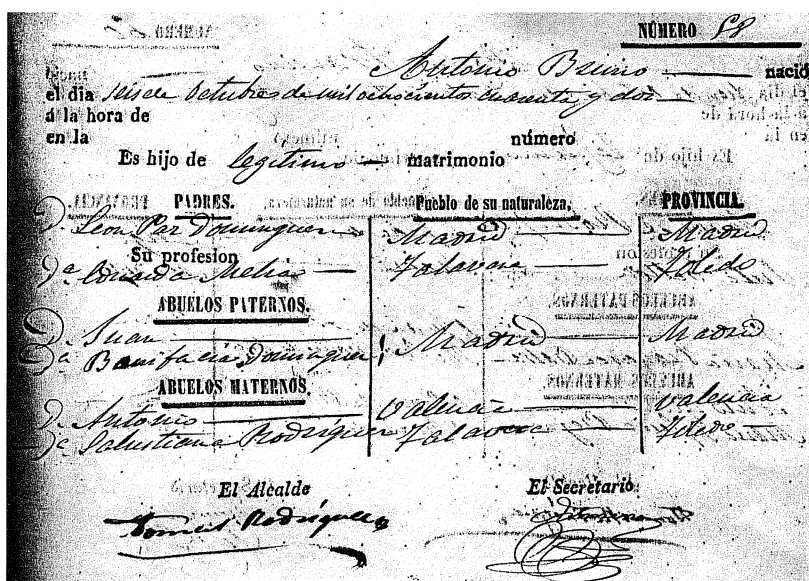 NÚMERO 58
Antonio Bruno nació
el dia seis de Octubre de mil ochocientos cuarenta y dos
á la hora de
en la número
Es hijo de legitimo matrimonio
PADRES. Pueblo de su naturaleza. PROVINCIA.
D. Leon Par Dominguez Madrid Madrid
Su profesion
Dª Melia Talavera Toledo
ABUELOS PATERNOS.
D. Juan Madrid Madrid
Dª Bonifacia Dominguez
ABUELOS MATERNOS.
D. Antonio Valencia Valencia
Dª Salustiana Rodriguez Talavera Toledo
El Alcalde El Secretario
Tomas Rodriguez